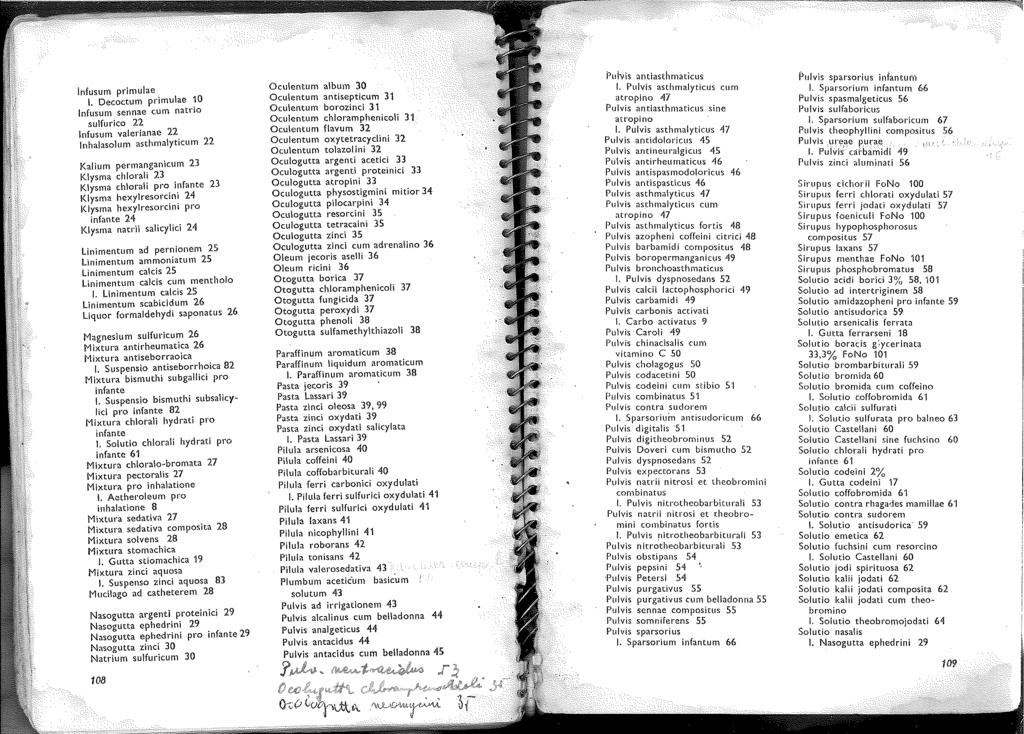 Infusum primulae
l. Decoctum primulae 10
Infusum sennae cum natrio
sulfurico 22
Infusum valerianae 22
Inhalasolum asthmalyticum 22
Kalium permanganicum 23
Klysma chlorali 23
Klysma chlorali pro infante 23
Klysma hexylresorcini 24
Klysma hexylresorcini pro
infante 24
Klysma natrii salicylici 24
Linimentum ad pernionem 25
Linimentum ammoniatum 25
Linimentum calcis 25
Linimentum calcis cum mentholo
l. Linimentum calcis 25
Linimentum scabicidum 26
Liquor formaldehydi saponatus 26
Magnesium sulfuricum 26
Mixtura antirheumatica 26
Mixtura antiseborraoica
l. Suspensio antiseborrhoica 82
Mixtura bismuthi subgallici pro
infante
l. Suspensio bismuthi subsalicy-
lici pro infante 82
Mixtura chlorali hydrati pro
infante
l. Solutio chlorali hydrati pro
infante 61
Mixtura chloralo-bromata 27
Mixtura pectoralis 27
Mixtura pro inhalatione
l. Aetheroleum pro
inhalatione 8
Mixtura sedativa 27
Mixtura sedativa composita 28
Mixtura solvens 28
Mixtura stomachica
l. Gutta stiomachica 19
Mixtura zinci aquosa
l. Suspenso zinci aquosa 83
Mucilago ad catheterem 28
Nasogutta argenti proteinici 29
Nasogutta ephedrini 29
Nasogutta ephedrini pro infante 29
Nasogutta zinci 30
Natrium sulfuricum 30
108
Oculentum album 30
Oculentum antisepticum 31
Oculentum borozinci 31
Oculentum chloramphenicoli 31
Oculentum flavum 32
Oculentum oxytetracyclini 32
Oculentum tolazolini 32
Oculogutta argenti acetici 33
Oculogutta argenti proteinici 33
Oculogutta atropini 33
Oculogutta physostigmini mitior 34
Oculogutta pilocarpini 34
Oculogutta resorcini 35
Oculogutta tetracaini 35
Oculogutta zinci 35
Oculogutta zinci cum adrenalino 36
Oleum jecoris aselli 36
Oleum ricini 36
Otogutta borica 37
Otogutta chloramphenicoli 37
Otogutta fungicida 37
Otogutta peroxydi 37
Otogutta phenoli 38
Otogutta sulfamethylthiazoli 38
Paraffinum aromaticum 38
Paraffinum liquidum aromaticum
l. Paraffinum aromaticum 38
Pasta jecoris 39
Pasta Lassari 39
Pasta zinci oleosa 39, 99
Pasta zinci oxydati 39
Pasta zinci oxydati salicylata
l. Pasta Lassari 39
Pilula arsenicosa 40
Pilula coffeini 40
Pilula coffobarbiturali 40
Pilula ferri carbonici oxydulati
l. Pilula ferri sulfurici oxydulati 41
Pilula ferri sulfurici oxydulati 41
Pilula laxans 41
Pilula nicophyllini 41
Pilula roborans 42
Pilula tonisans 42
Pilula valerosedativa 43
Plumbum aceticum basicum
solutum 43
Pulvis ad irrigationem 43
Pulvis alcalinus cum belladonna 44
Pulvis analgeticus 44
Pulvis antacidus 44
Pulvis antacidus cum belladonna 45
Pulv. neutracidus 53
Oculogutta chloramphenicoli 35
Oculogutta neomycini 35
Pulvis antiasthmaticus
l. Pulvis asthmalyticus cum
atropino 47
Pulvis antiasthmaticus sine
atropino
l. Pulvis asthmalyticus 47
Pulvis antidoloricus 45
Pulvis antineuralgicus 45
Pulvis antirheumaticus 46
Pulvis antispasmodoloricus 46
Pulvis antispasticus 46
Pulvis asthmalyticus 47
Pulvis asthmalyticus cum
atropino 47
Pulvis asthmalyticus fortis 48
Pulvis azopheni coffeini citrici 48
Pulvis barbamidi compositus 48
Pulvis boropermanganicus 49
Pulvis bronchoasthmaticus
l. Pulvis dyspnosedans 52
Pulvis calcii lactophosphorici 49
Pulvis carbamidi 49
Pulvis carbonis activati
l. Carbo activatus 9
Pulvis Caroli 49
Pulvis chinacisalis cum
vitamino C 50
Pulvis cholagogus 50
Pulvis codacetini 50
Pulvis codeini cum stibio 51
Pulvis combinatus 51
Pulvis contra sudorem
l. Sparsorium antisudoricum 66
Pulvis digitalis 51
Pulvis digitheobrominus 52
Pulvis Doveri cum bismutho 52
Pulvis dyspnosedans 52
Pulvis expectorans 53
Pulvis natrii nitrosi et theobromini
combinatus
l. Pulvis nitrotheobarbiturali 53
Pulvis natrii nitrosi et theobro-
mini combinatus fortis
l. Pulvis nitrotheobarbiturali 53
Pulvis nitrotheobarbiturali 53
Pulvis obstipans 54
Pulvis pepsini 54
Pulvis Petersi 54
Pulvis purgativus 55
Pulvis purgativus cum belladonna 55
Pulvis sennae compositus 55
Pulvis somniferens 55
Pulvis sparsorius
l. Sparsorium infantum 66
Pulvis sparsorius infantum
l. Sparsorium infantum 66
Pulvis spasmalgeticus 56
Pulvis sulfaboricus
l. Sparsorium sulfaboricum 67
Pulvis theophyllini compositus 56
Pulvis ureae purae
l. Pulvis carbamidi 49
Pulvis zinci aluminati 56
Sirupus cichorii FoNo 100
Sirupus ferri chlorati oxydulati 57
Sirupus ferri jodati oxydulati 57
Sirupus foeniculi FoNo 100
Sirupus hypophosphorosus
compositus 57
Sirupus laxans 57
Sirupus menthae FoNo 101
Sirupus phosphobromatus 58
Solutio acidi borici 3% 58, 101
Solutio ad intertriginem 58
Solutio amidazopheni pro infante 59
Solutio antisudorica 59
Solutio arsenicalis ferrata
l. Gutta ferrarseni 18
Solutio boracis glycerinata
33,3% FoNo 101
Solutio brombarbiturali 59
Solutio bromida 60
Solutio bromida cum coffeino
l. Solutio coffobromida 61
Solutio calcii sulfurati
l. Solutio sulfurata pro balneo 63
Solutio Castellani 60
Solutio Castellani sine fuchsino 60
Solutio chlorali hydrati pro
infante 61
Solutio codeini 2%
l. Gutta codeini 17
Solutio coffobromida 61
Solutio contra rhagades mamillae 61
Solutio contra sudorem
l. Solutio antisudorica 59
Solutio emetica 62
Solutio fuchsini cum resorcino
l. Solutio Castellani 60
Solutio jodi spirituosa 62
Solutio kalii jodati 62
Solutio kalii jodati composita 62
Solutio kalii jodati cum theo-
bromino
l. Solutio theobromojodati 64
Solutio nasalis
l. Nasogutta ephedrini 29
109